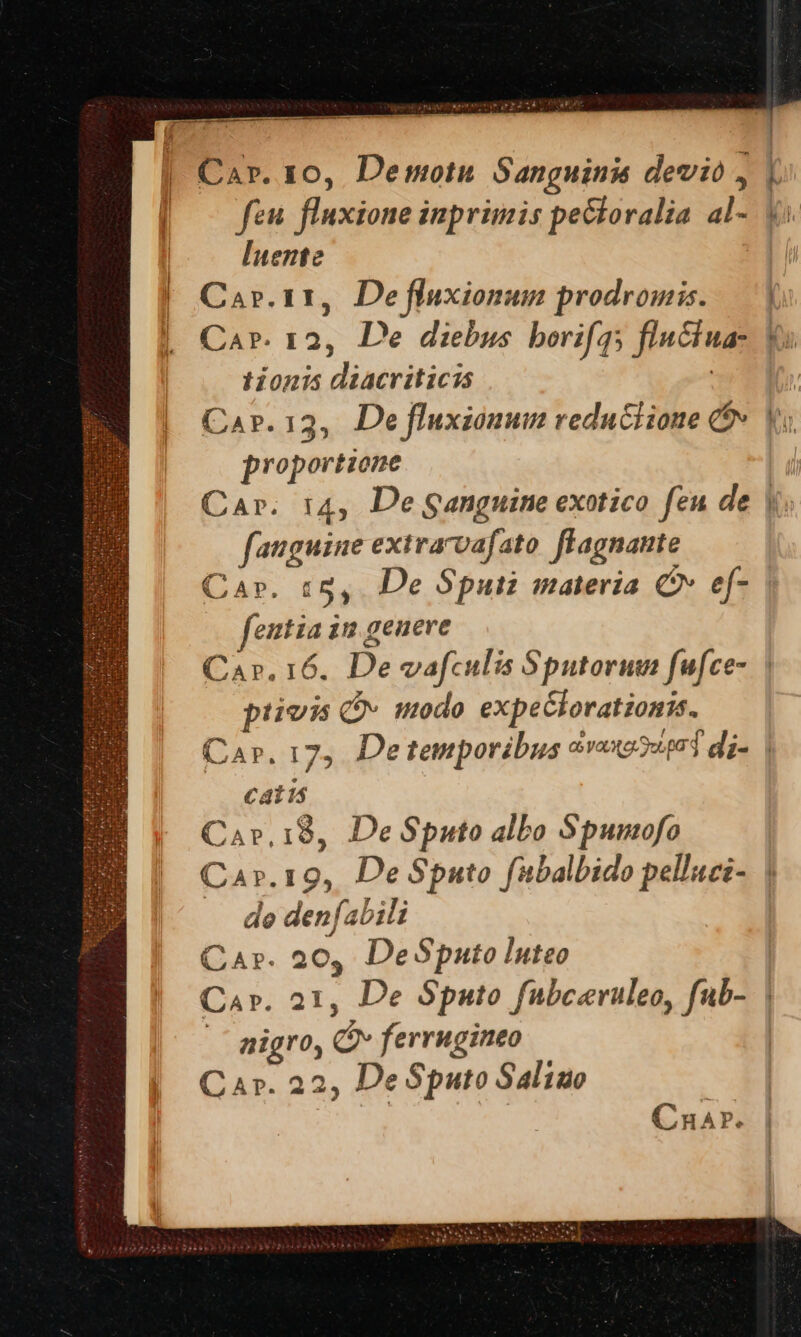 Cap. 10, De motu Sanguinis devio,
ſeu fluxione inprimis pectoralia al-
luente
Cap. 11, De fluxionum prodromis.
Cap. 12, De diebus horiſq; fluctua-
tionis diacriticis
Cap. 13, De fluxionum reductione &
proportione
Cap. 14, De Sanguine exotico ſeu de
ſanguine extravaſato ſtagnante
Cap. 15, De Sputi materia & eſ-
ſentia in genere
Cap. 16. De vaſculis Sputorum ſuſce-
ptivis & modo expectorationis.
Cap. 17, De temporibus di-
catis
Cap. 18, De Sputo albo Spumoſo
Cap. 19, De Sputo ſubalbido pelluci-
do denſabili
Cap. 20, De Sputo luteo
Cap. 21, De Sputo ſubcæruleo, ſub-
nigro, & ferrugineo
Cap. 22, De Sputo Salino
Chap.